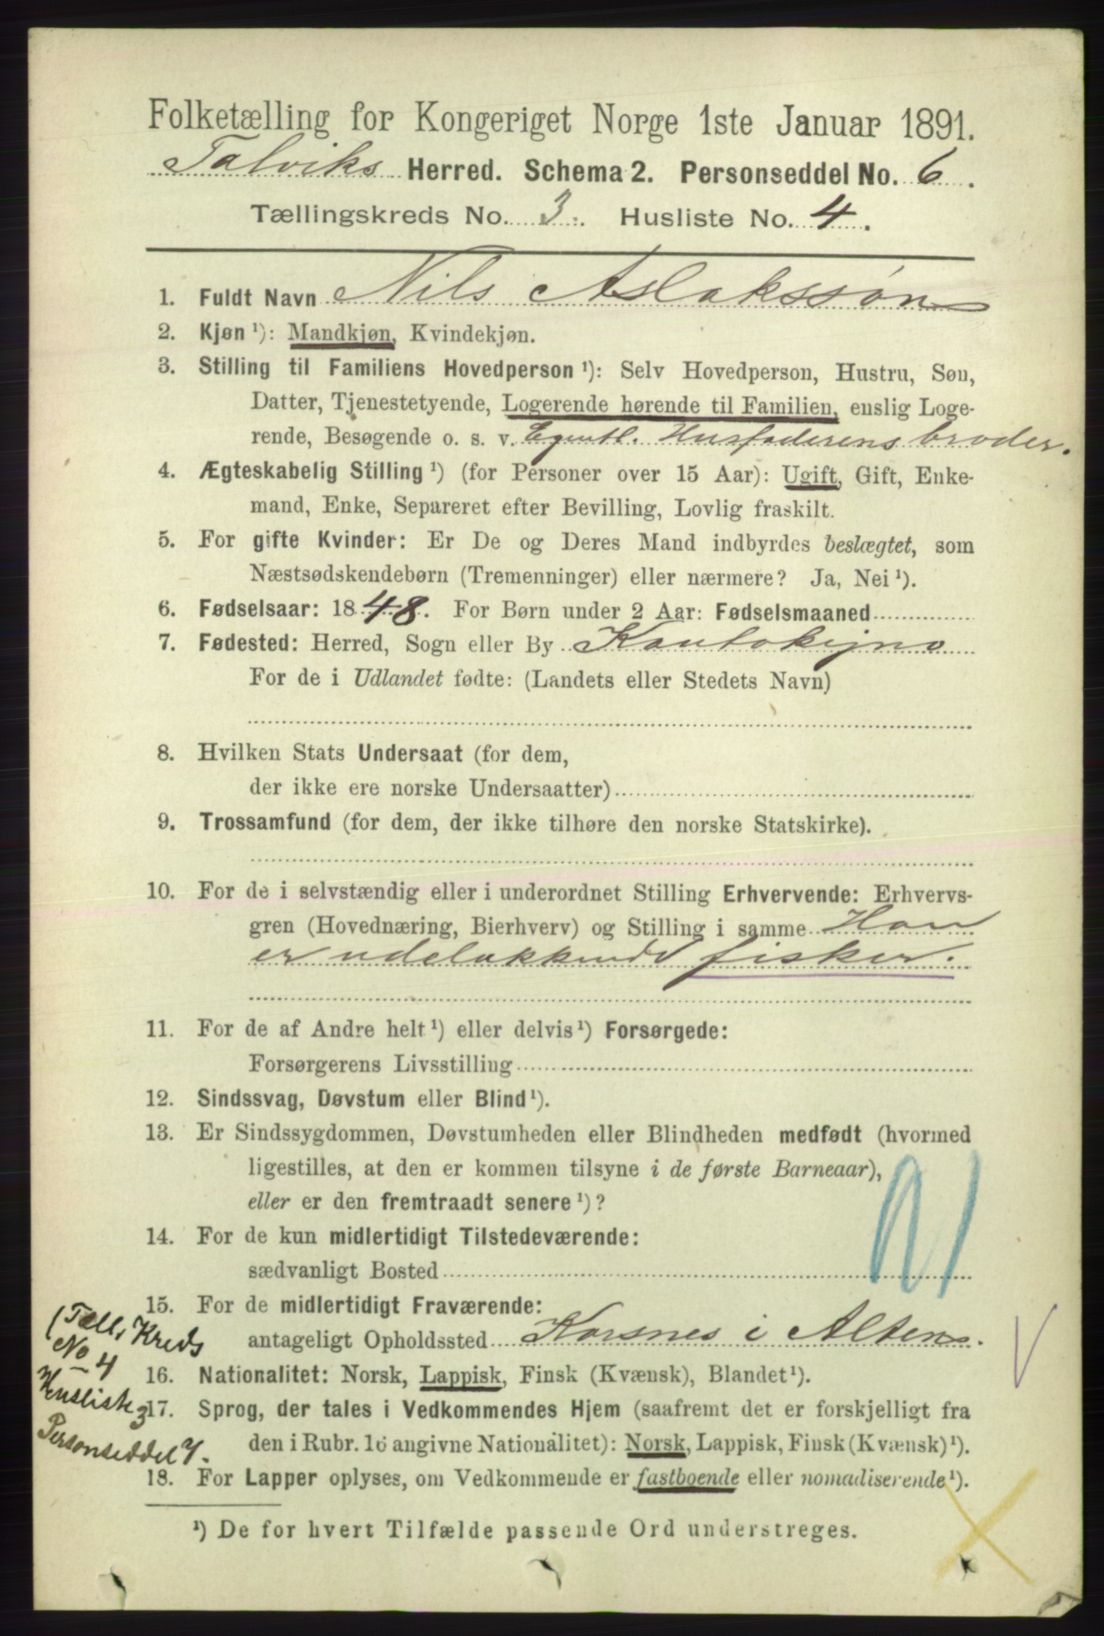 Folketælling for Kongeriget Norge 1ste Januar 1891.
Talviks Herred. Schema 2. Personseddel No. 6.
Tællingskreds No. 3. Husliste No. 4.
1. Fuldt Navn Nils Aslakssøn
2. Kjøn ¹): Mandkjøn, Kvindekjøn.
3. Stilling til Familiens Hovedperson ¹): Selv Hovedperson, Hustru, Søn,
Datter, Tjenestetyende, Logerende hørende til Familien, enslig Loge-
rende, Besøgende o. s. v. Egentl. Husfaderens broder.
4. Ægteskabelig Stilling ¹) (for Personer over 15 Aar): Ugift, Gift, Enke-
mand, Enke, Separeret efter Bevilling, Lovlig fraskilt.
5. For gifte Kvinder: Er De og Deres Mand indbyrdes beslægtet, som
Næstsødskendebørn (Tremenninger) eller nærmere? Ja, Nei ¹).
6. Fødselsaar: 1848. For Børn under 2 Aar: Fødselsmaaned
7. Fødested: Herred, Sogn eller By Koutokejno
For de i Udlandet fødte: (Landets eller Stedets Navn)
8. Hvilken Stats Undersaat (for dem,
der ikke ere norske Undersaatter)
9. Trossamfund (for dem, der ikke tilhøre den norske Statskirke).
10. For de i selvstændig eller i underordnet Stilling Erhvervende: Erhvervs-
gren (Hovednæring, Bierhverv) og Stilling i samme Han
er udelukkende fisker.
11. For de af Andre helt ¹) eller delvis ¹) Forsørgede:
Forsørgerens Livsstilling
12. Sindssvag, Døvstum eller Blind ¹).
13. Er Sindssygdommen, Døvstumheden eller Blindheden medfødt (hvormed
ligestilles, at den er kommen tilsyne i de første Barneaar),
eller er den fremtraadt senere ¹)?
14. For de kun midlertidigt Tilstedeværende:
sædvanligt Bosted
15. For de midlertidigt Fraværende:
antageligt Opholdssted Korsnes i Alten.
(Tæll. Kreds
No 4
Husliste 3
Personseddel 7.
16. Nationalitet: Norsk, Lappisk, Finsk (Kvænsk), Blandet ¹).
17. Sprog, der tales i Vedkommendes Hjem (saafremt det er forskjelligt fra
den i Rubr. 16 angivne Nationalitet): Norsk, Lappisk, Finsk (Kvænsk) ¹).
18. For Lapper oplyses, om Vedkommende er fastboende eller nomadiserende ¹).
¹) De for hvert Tilfælde passende Ord understreges.